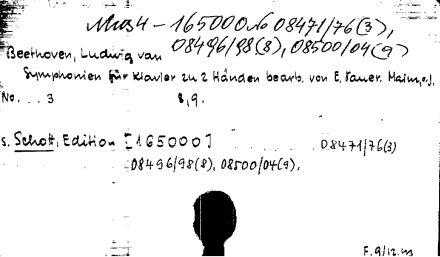 Mus 4 - 165000 No 08471/76(3),
08496/98(8), 08500/04(9)
Beethoven, Ludwig van
Symphonien für Klavier zu 2 Händen bearb. von E. Pauer. Mainz, o.J.
No. . . 3 8, 9.
s. Schott, Edition [165000] . . . 08471/76(3)
08496/98(8), 08500/04(9).
F. 9/12.